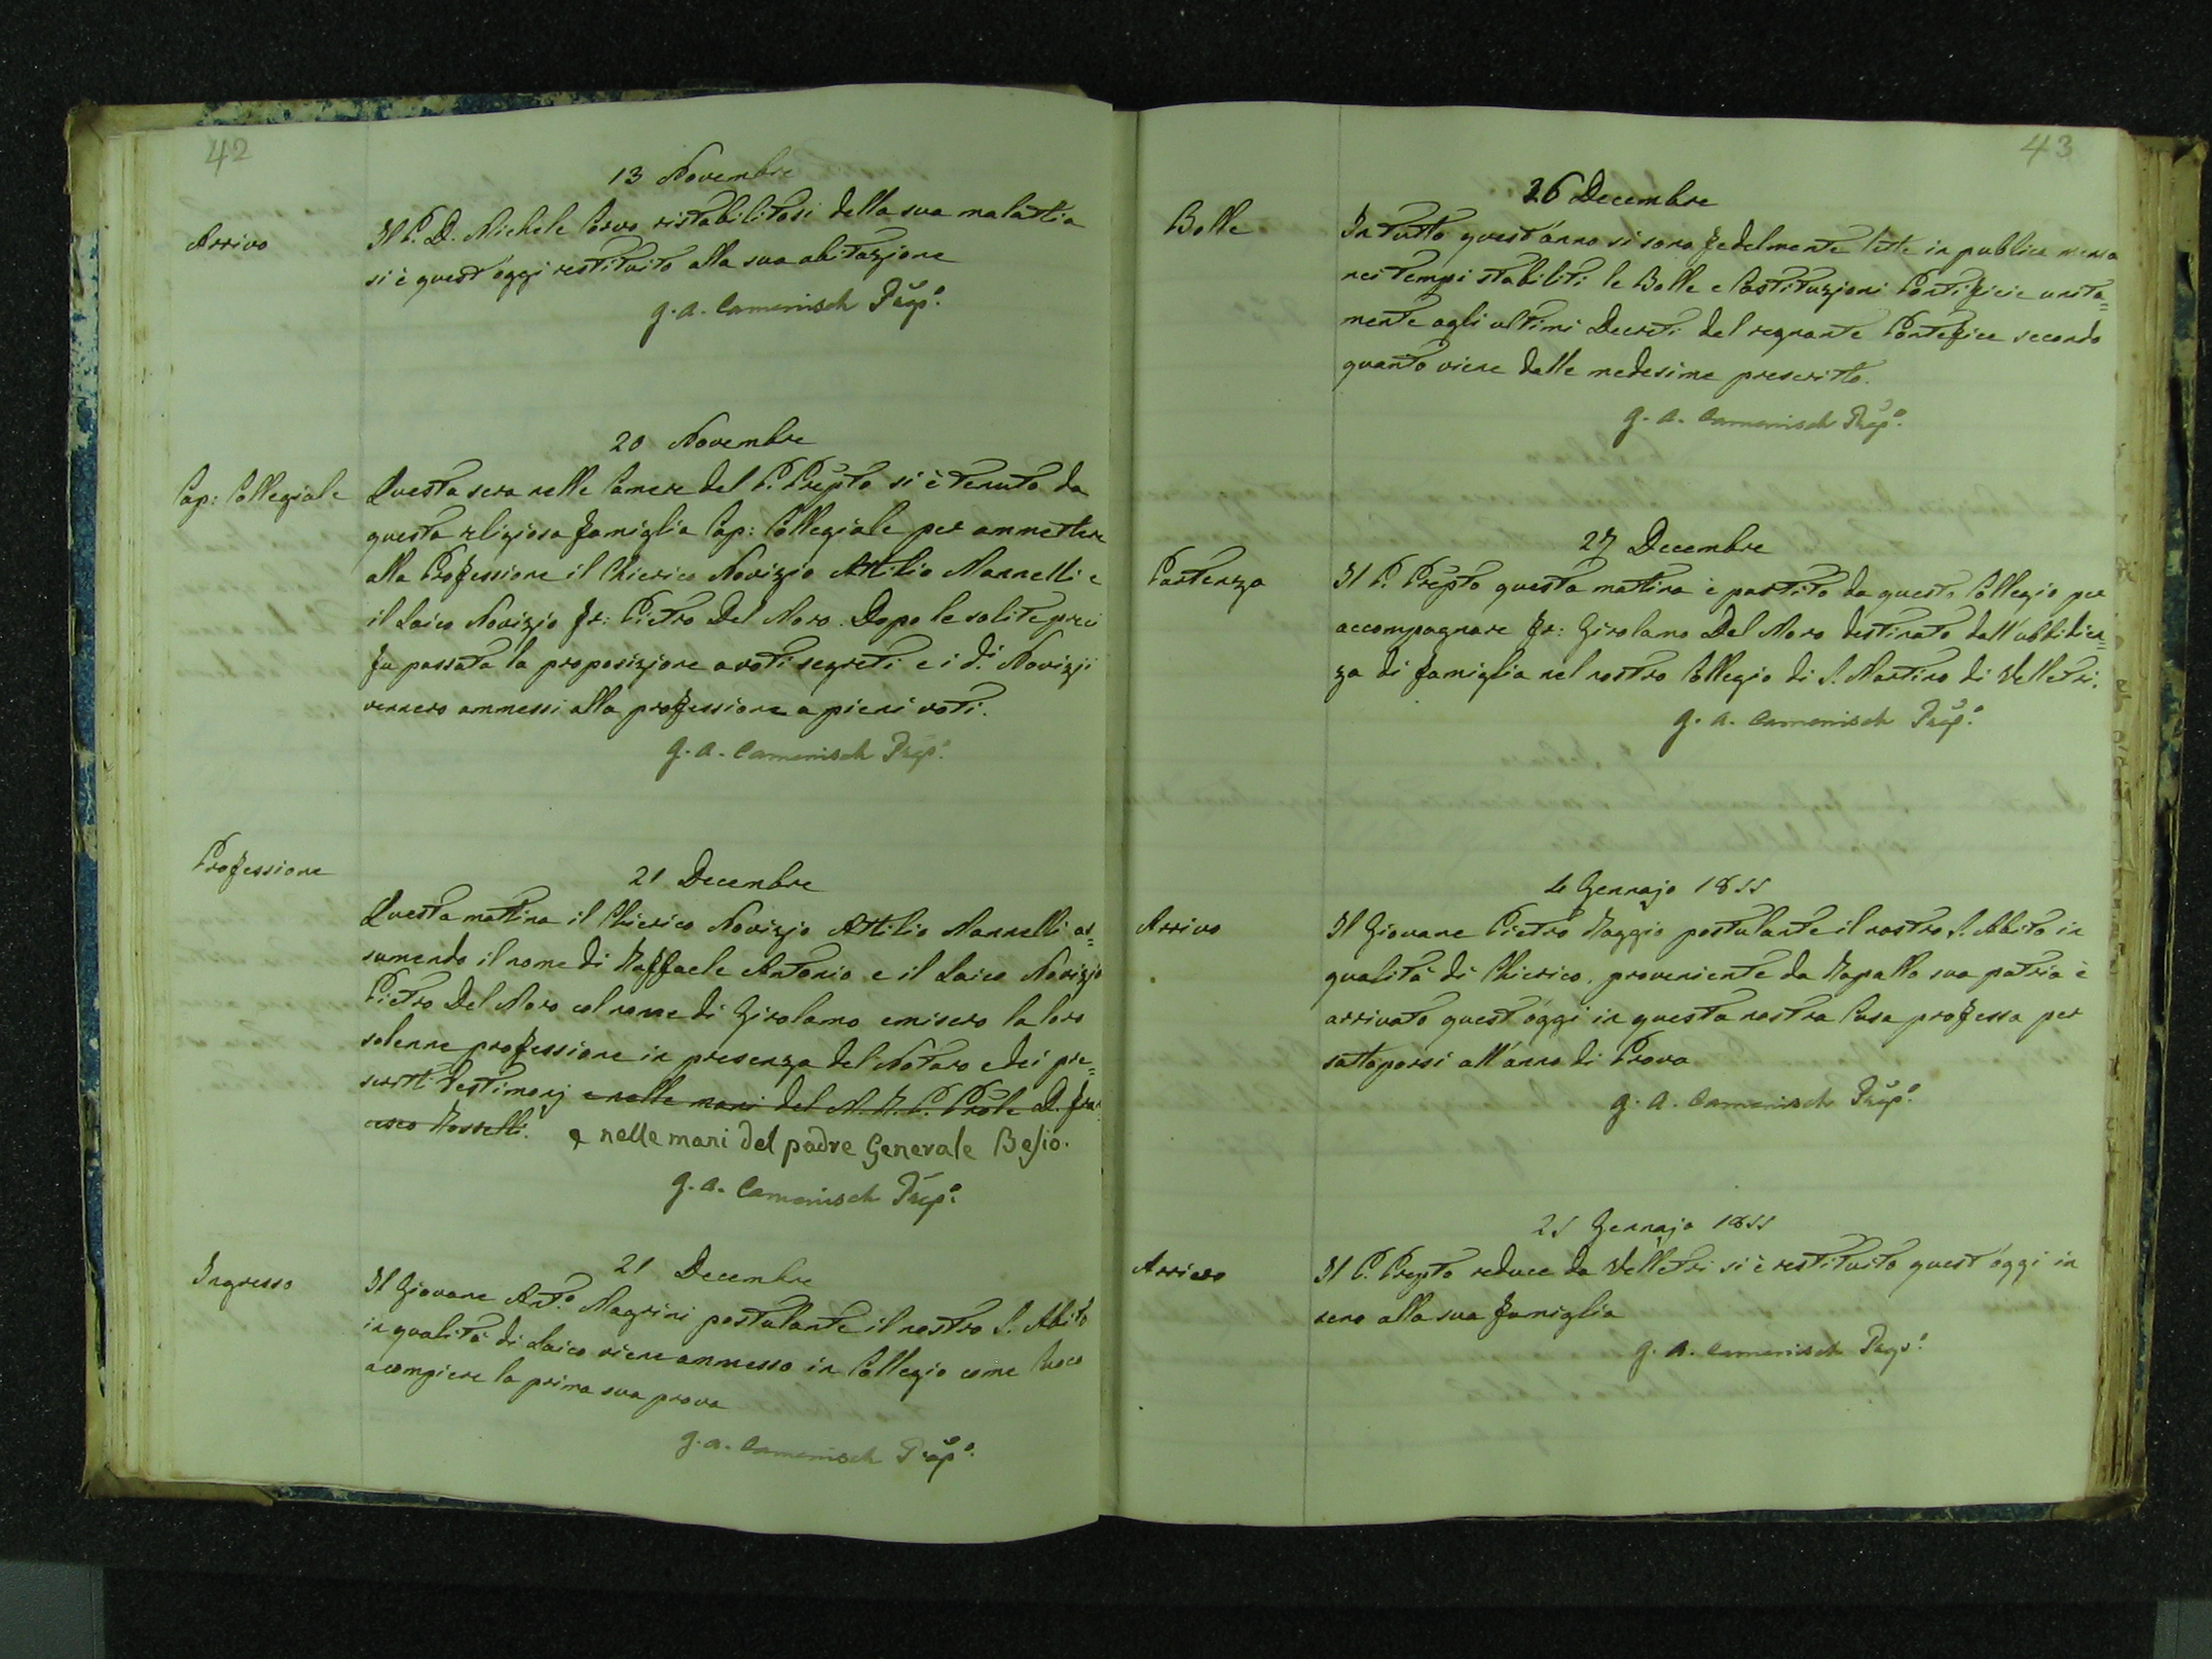 42
13 Novembre
Arrivo
Il P. D. Michele Corvo ristabilitosi della sua malattia
si è quest'oggi restituito alla sua abitazione
G. A. Camenisch Prep.º
20 Novembre
Cap: Collegiale
Questa sera nelle Camere del P. Prepto si è tenuto da
questa religiosa famiglia Cap: Collegiale per ammettere
alla Professione il Chierico Novizio Attilio Mannelli e
il Laico Novizio Fr: Pietro Del Moro. Dopo le solite preci
fu passata la proposizione a voti segreti e i di Novizj
vennero ammessi alla professione a pieni voti.
G. A. Camenisch Prep.º
Professione
21 Decembre
Questa mattina il Chierico Novizio Attilio Mannelli as=
sumendo il nome di Raffaele Antonio e il Laico Novizio
Pietro Del Moro col nome di Girolamo emisero la loro
solenne professione in presenza del Notaro e dei pre=
scritti testimonj e nelle mani del M. R. P. Prõle D. Fran
cesco Rosselli. e nelle mani del padre Generale Besio.
G. A. Camenisch Prep.º
Ingresso
21 Decembre
Il Giovane Ant.º Magrini postulante il nostro S. Abito
in qualità di Laico viene ammesso in Collegio come Cuoco
a compiere la prima sua prova
G. A. Camenisch Prep.º
43
26 Decembre
Bolle
In tutto quest'anno si sono fedelmente lette in publica mensa
nei tempi stabiliti le Bolle e Costituzioni Pontificie unita=
mente agli ultimi Decreti del regnante Pontefice secondo
quanto viene dalle medesime prescritto.
G. A. Camenisch Prep.º
27 Decembre
Partenza
Il P. Prepto questa mattina è partito da questo Collegio per
accompagnare Fr: Girolamo Del Moro destinato dall'ubbidien=
za di famiglia nel nostro Collegio di S. Martino di Velletri.
G. A. Camenisch Prep.º
4 Gennajo 1855
Arrivo
Il Giovane Pietro Raggio postulante il nostro S. Abito in
qualità di Chierico, proveniente da Rapallo sua patria è
arrivato quest'oggi in questa nostra Casa professa per
sottoporsi all'anno di Prova
G. A. Camenisch Prep.º
25 Gennajo 1855
Arrivo
Il P. Prepto reduce da Velletri si è restituito quest'oggi in
seno alla sua famiglia
G. A. Camenisch Prep.º